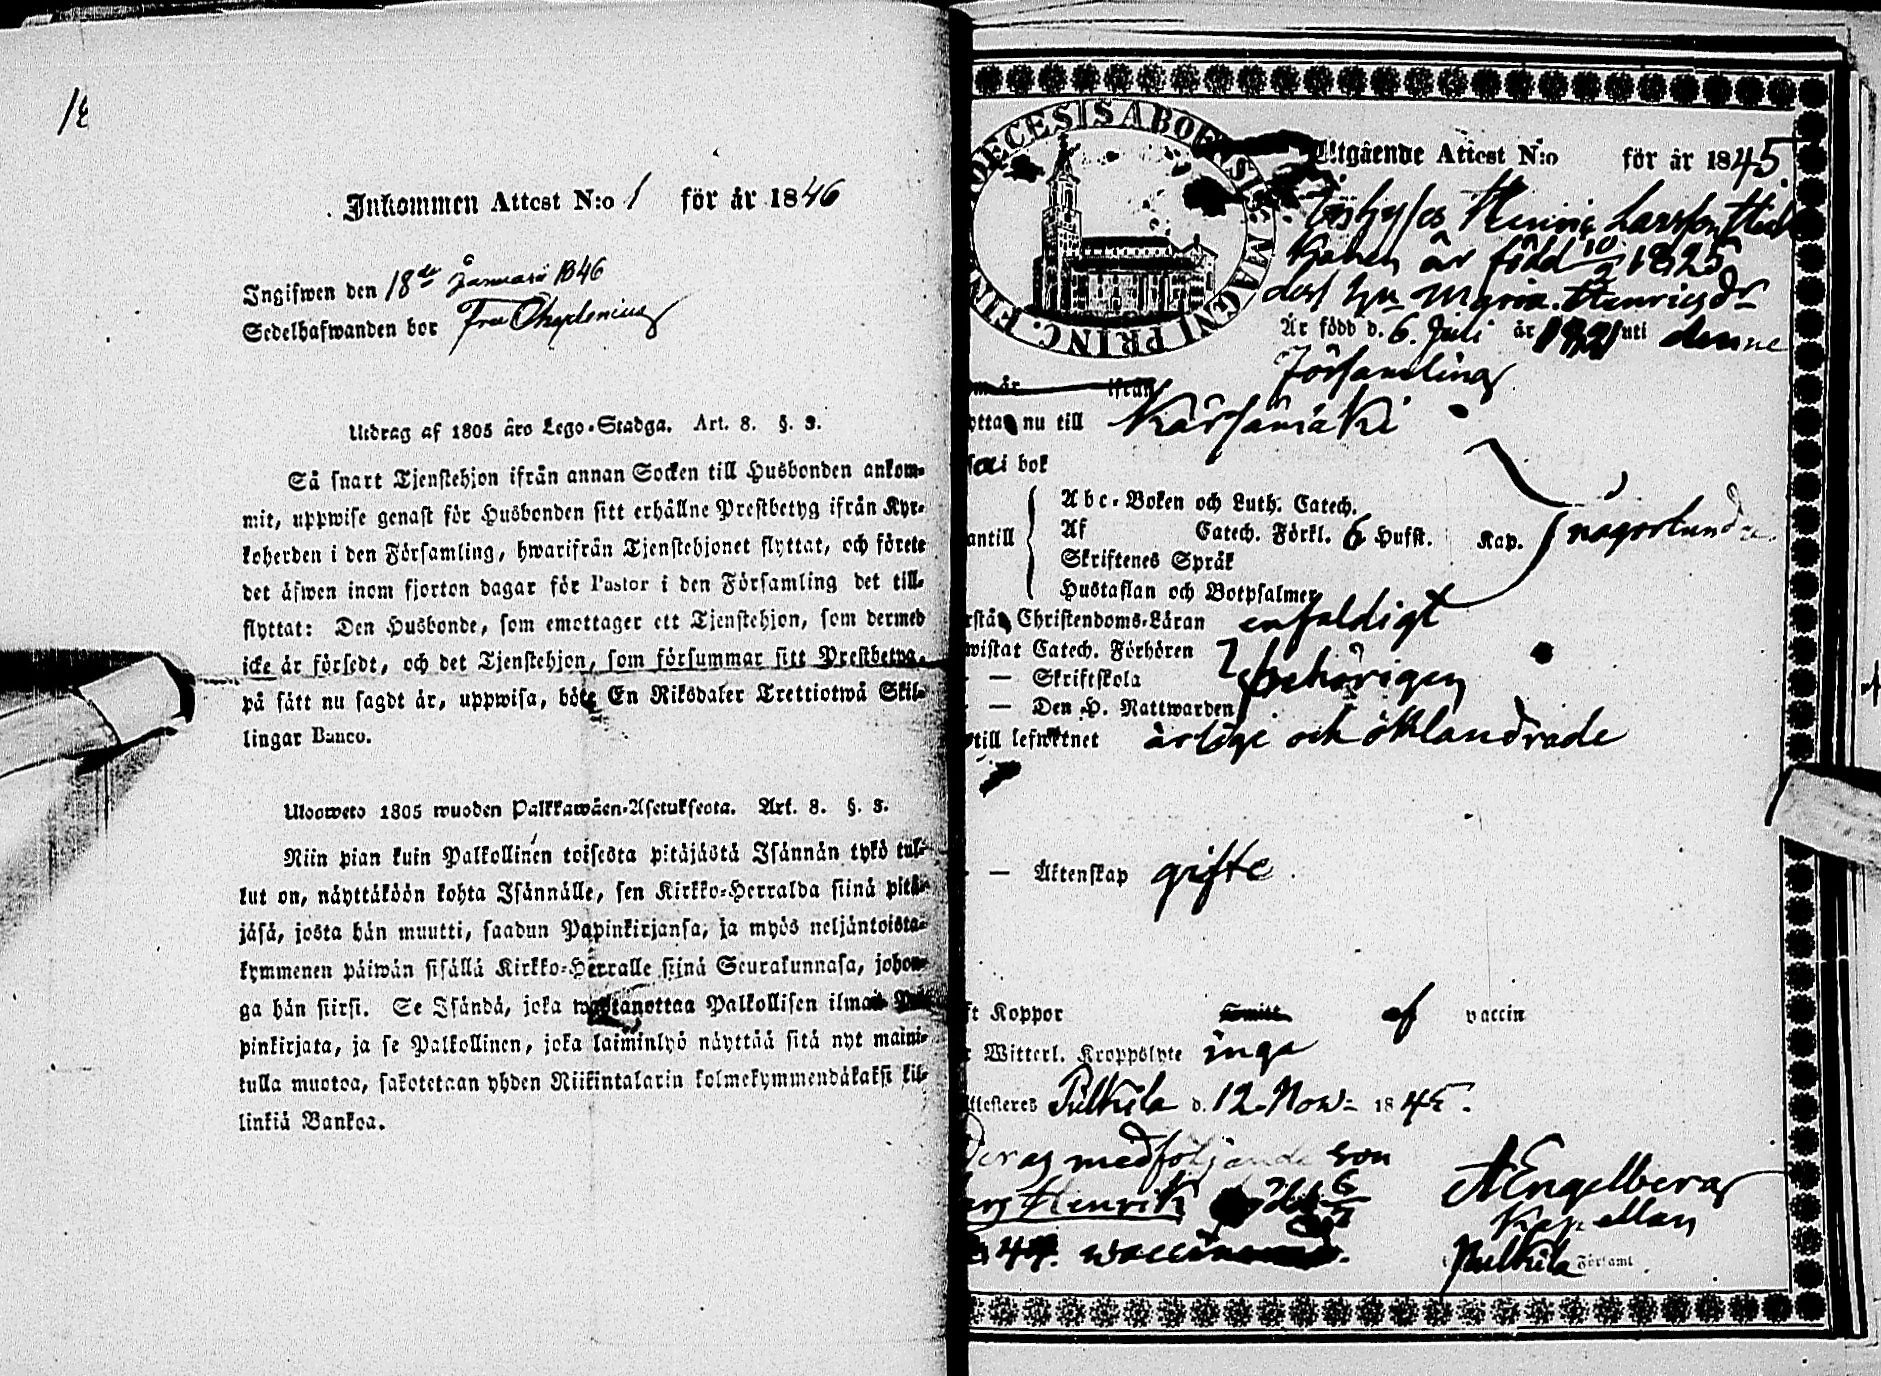 Inkommen Attest N:o 1 för år 1846
Ingifwen den 18de Januari 1846
Sedelhafwanden bor
Utdrag af 1805 års Lego-Stadga. Art. 8. §. 3.
Så snart Tjenstehjon ifrån annan Socken till Husbonden ankom-
mit, uppwise genast för Husbonden sitt erhållne Prestbetyg ifrån Kyr-
koherden i den Församling, hwarifrån Tjenstehjonet flyttat, och förete
det äfwen inom fjorton dagar för Pastor i den Församling det till-
flyttat: Den Husbonde, som emottager ett Tjenstehjon, som dermed
icke är försedt, och det Tjenstehjon, som försummar sitt Prestbetyg,
på sätt nu sagdt är, uppwisa, böte En Riksdaler Trettiotwå Skil-
lingar Banco.
Uloswetо 1805 wuoden Palkkawäen-Asetuksesta. Art. 8. §. 3.
Niin pian kuin Palkollinen toisesta pitäjästä Isännän tykö tul-
lut on, näyttäköön kohta Isännälle, sen Kirkko-Herralda siinä pitä-
jäsä, josta hän muutti, saadun Papinkirjansa, ja myös neljäntoista-
kymmenen päiwän sisällä Kirkko-Herralle siinä Seurakunnasa, johon-
ga hän siirsi. Se Isändä, joka wastanottaa Palkollisen ilman Pa-
pinkirjata, ja se Palkollinen, joka laiminlyö näyttää sitä nyt maini-
tulla muotoa, sakotetaan yhden Riikintalarin kolmekymmendäkaksi kil-
linkiä Bankoa.
DIOECESIS ABOENSIS MAGNI PRINC. FIN
Utgående Attest N:o för år 1845
Henric Larsson
är född 10/9 1825
dess Maria Henricsdr
Är född d. 6. Juli år uti denne
Församling
om år ifrån
nu till Kärsämäki
i bok
Abc-Boken och Luth. Catech.
antill Af Catech. Förkl. 6 Hufst. Kap. någorlunda
Skriftenes Språk
Hustaflan och Botpsalmer
Christendoms-Läran enfaldigt
wistat Catech. Förhören
— — Skriftskola behörigen
— — Den H. Nattwarden
till lefwernet ärlige och oklandrade
— — Äktenskap gifte
ft Koppor af vaccin
Witterl. Kroppslyte inga
Attesteres Pulkila d. 12 Nov. 1845.
Deras medföljande son
Henrik född 6/7
AEngelberg
Kapellan
i Pulkila Församl.